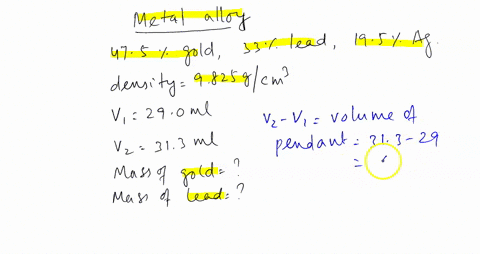 Metal alloy
47.5 % gold, 33% lead, 19.5% Ag.
density = 9.825g/cm³
V₁ = 29.0 ml
V₂ = 31.3 ml
Mass of gold = ?
Mass of lead = ?
V₂-V₁ = volume of
pendant = 31.3 - 29
=